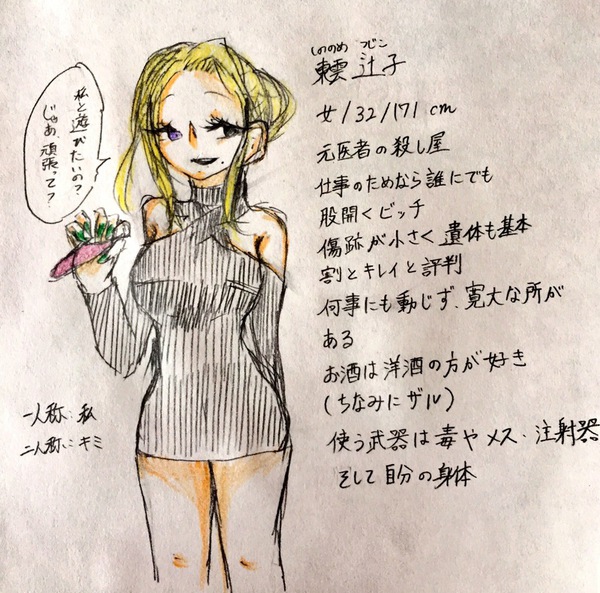 私と遊びたいの？
じゃあ、頑張って？
しののめ つじこ
東雲 辻子
女/32/171cm
元医者の殺し屋
仕事のためなら誰にでも
股開くビッチ
傷跡が小さく遺体も基本
割とキレイと評判
何事にも動じず、寛大な所が
ある
お酒は洋酒の方が好き
(ちなみにザル)
使う武器は毒やメス・注射器
そして自分の身体
一人称:私
二人称:キミ